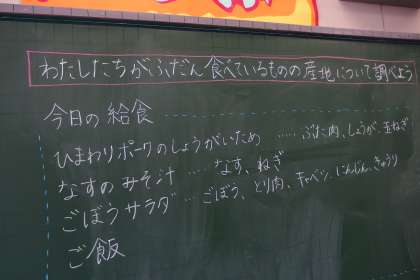 わたしたちがふだん食べているものの産地について調べよう
今日の給食
ひまわりポークのしょうがいため …… ぶた肉、しょうが、玉ねぎ
なすのみそ汁 …… なす、ねぎ
ごぼうサラダ … ごぼう、とり肉、キャベツ、にんじん、きゅうり
ご飯